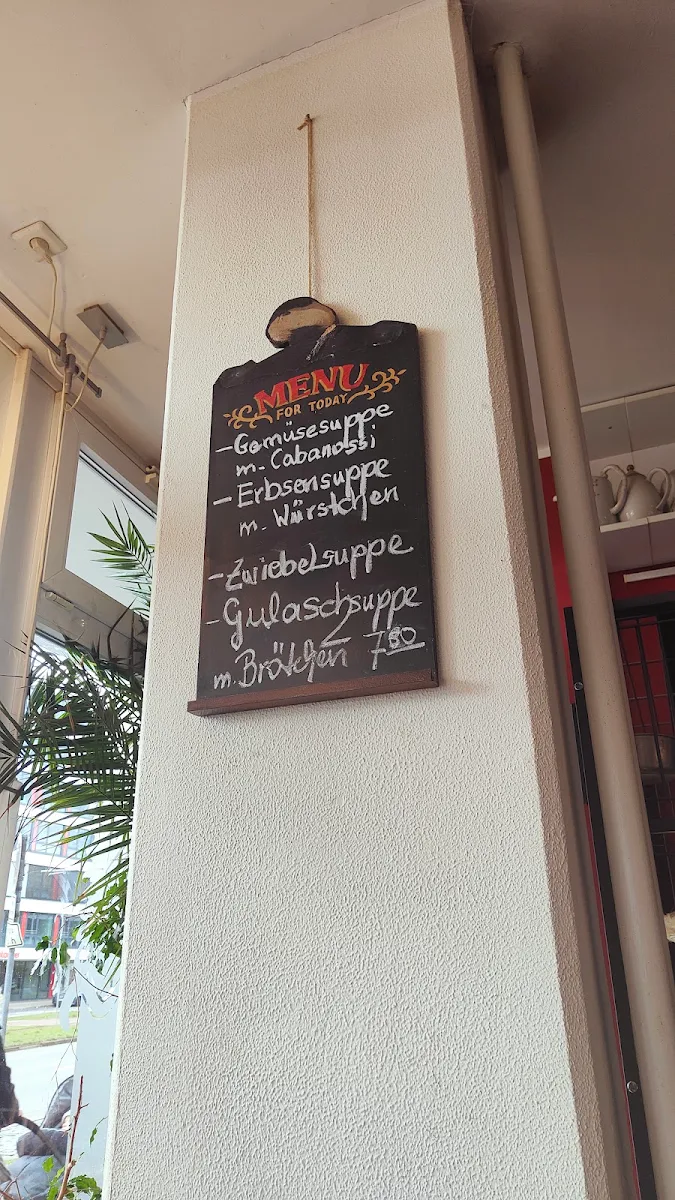 MENU
FOR TODAY
- Gemüsesuppe
m. Cabanossi
- Erbsensuppe
m. Würstchen
- Zwiebelsuppe
- Gulaschsuppe
m. Brötchen 7 80